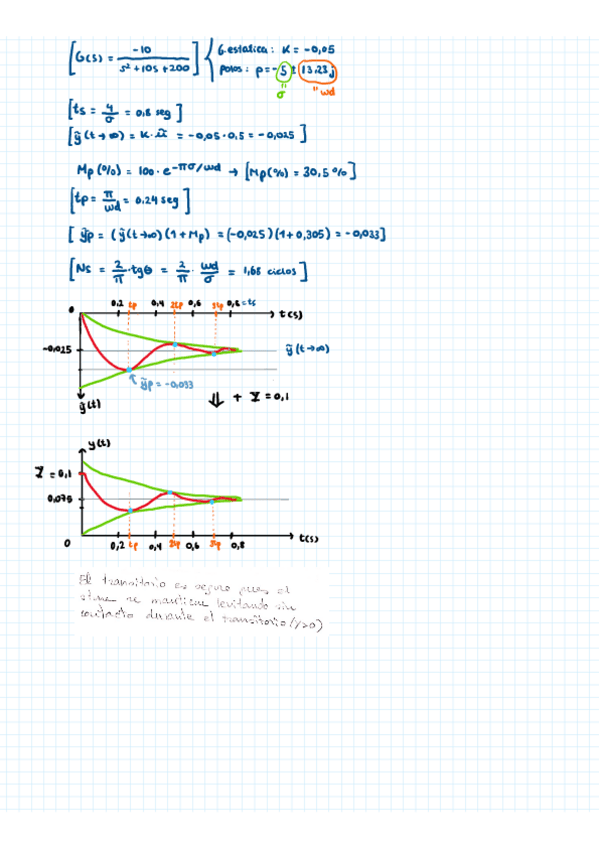 [G(s) = -10 / s² + 10s + 200] { G.estática: K = -0,05
Polos: p = -5 ± 13,23j
" σ " wd
[ts = 4/σ = 0,8 seg]
[ỹ(t→∞) = K·ũ = -0,05·0,5 = -0,025]
Mp(%) = 100·e^-πσ/wd → [Mp(%) = 30,5%]
[tp = π/wd = 0,24 seg]
[ỹp = (ỹ(t→∞)(1+Mp) = (-0,025)(1+0,305) = -0,033]
[Ns = 2/π · tgθ = 2/π · wd/σ = 1,68 ciclos]
0 0,2 tp 0,4 2tp 0,6 3tp 0,8=ts t(s)
-0,025 ỹ(t→∞)
ỹp = -0,033
ỹ(t) ⇓ + Ȳ = 0,1
y(t)
Ȳ = 0,1
0,075
0 0,2 tp 0,4 2tp 0,6 3tp 0,8 t(s)
El transitorio es seguro pues el
se mantiene levitando sin
contacto durante el transitorio (y>0)